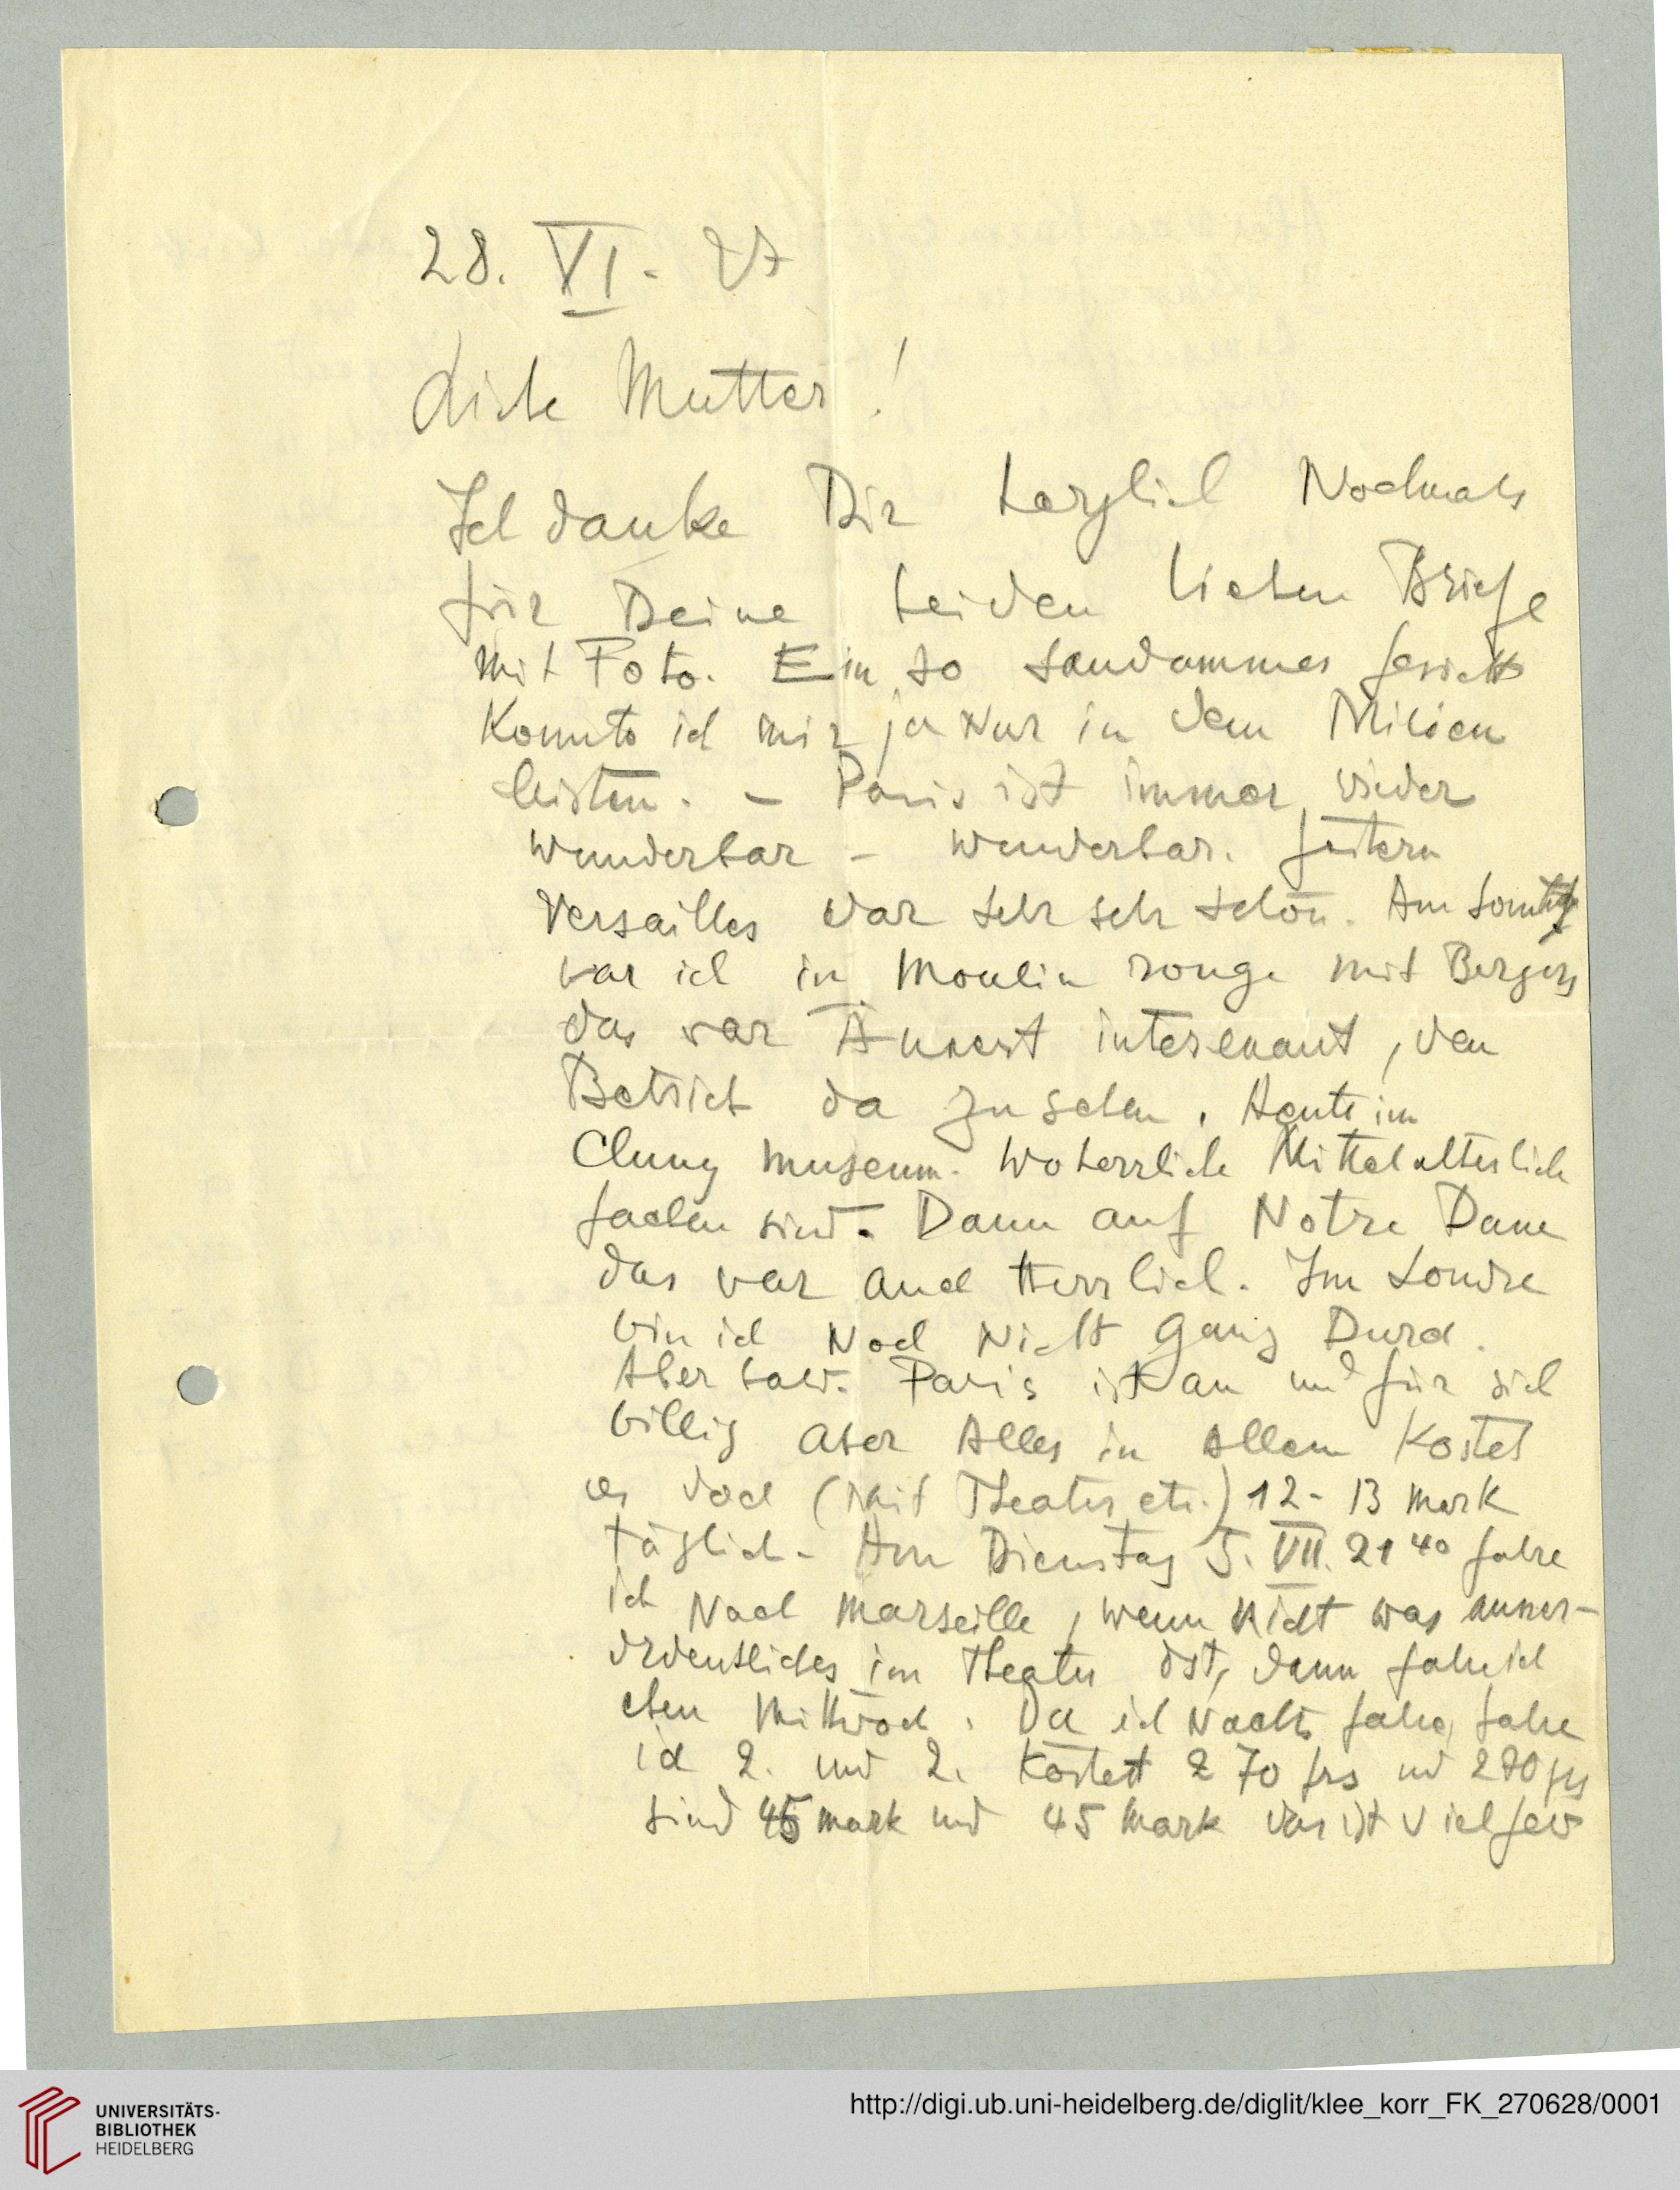 28. VI. 27
Liebe Mutter!
Ich danke Dir herzlich Nochmals
für Deine beiden lieben Briefe
mit Foto. Ein so
Konnte ich mir ja Nur in dem Milieu
leisten. – Paris ist immer wieder
wunderbar – wunderbar. Gestern
Versailles war sehr sehr schön. Am Sonntag
war ich in Moulin rouge mit Bergers
das war Äusserst interesant, den
Betrieb da zu sehen. Heute im
Cluny museum. Wo herrliche Mittelalterliche
Sachen sind. Dann auf Notre Dame
das war auch Herrlich. Im Louvre
bin ich Noch Nicht ganz Durch.
Aber bald. Paris ist an und für sich
billig aber Alles in Allem Kostet
es doch (Mit Theater etc.) 12 - 13 Mark
täglich. Am Dienstag 5. VII. 21 40 fahre
ich Nach Marseille, wenn Nicht was ausser-
ordentliches im Theater ist, dann fahr ich
eben Mittwoch. Da ich Nachts fahre, fahre
ich 2. und 2. Kostet 270 frs und 270 frs
sind 45 mark und 45 Mark das ist viel Geld